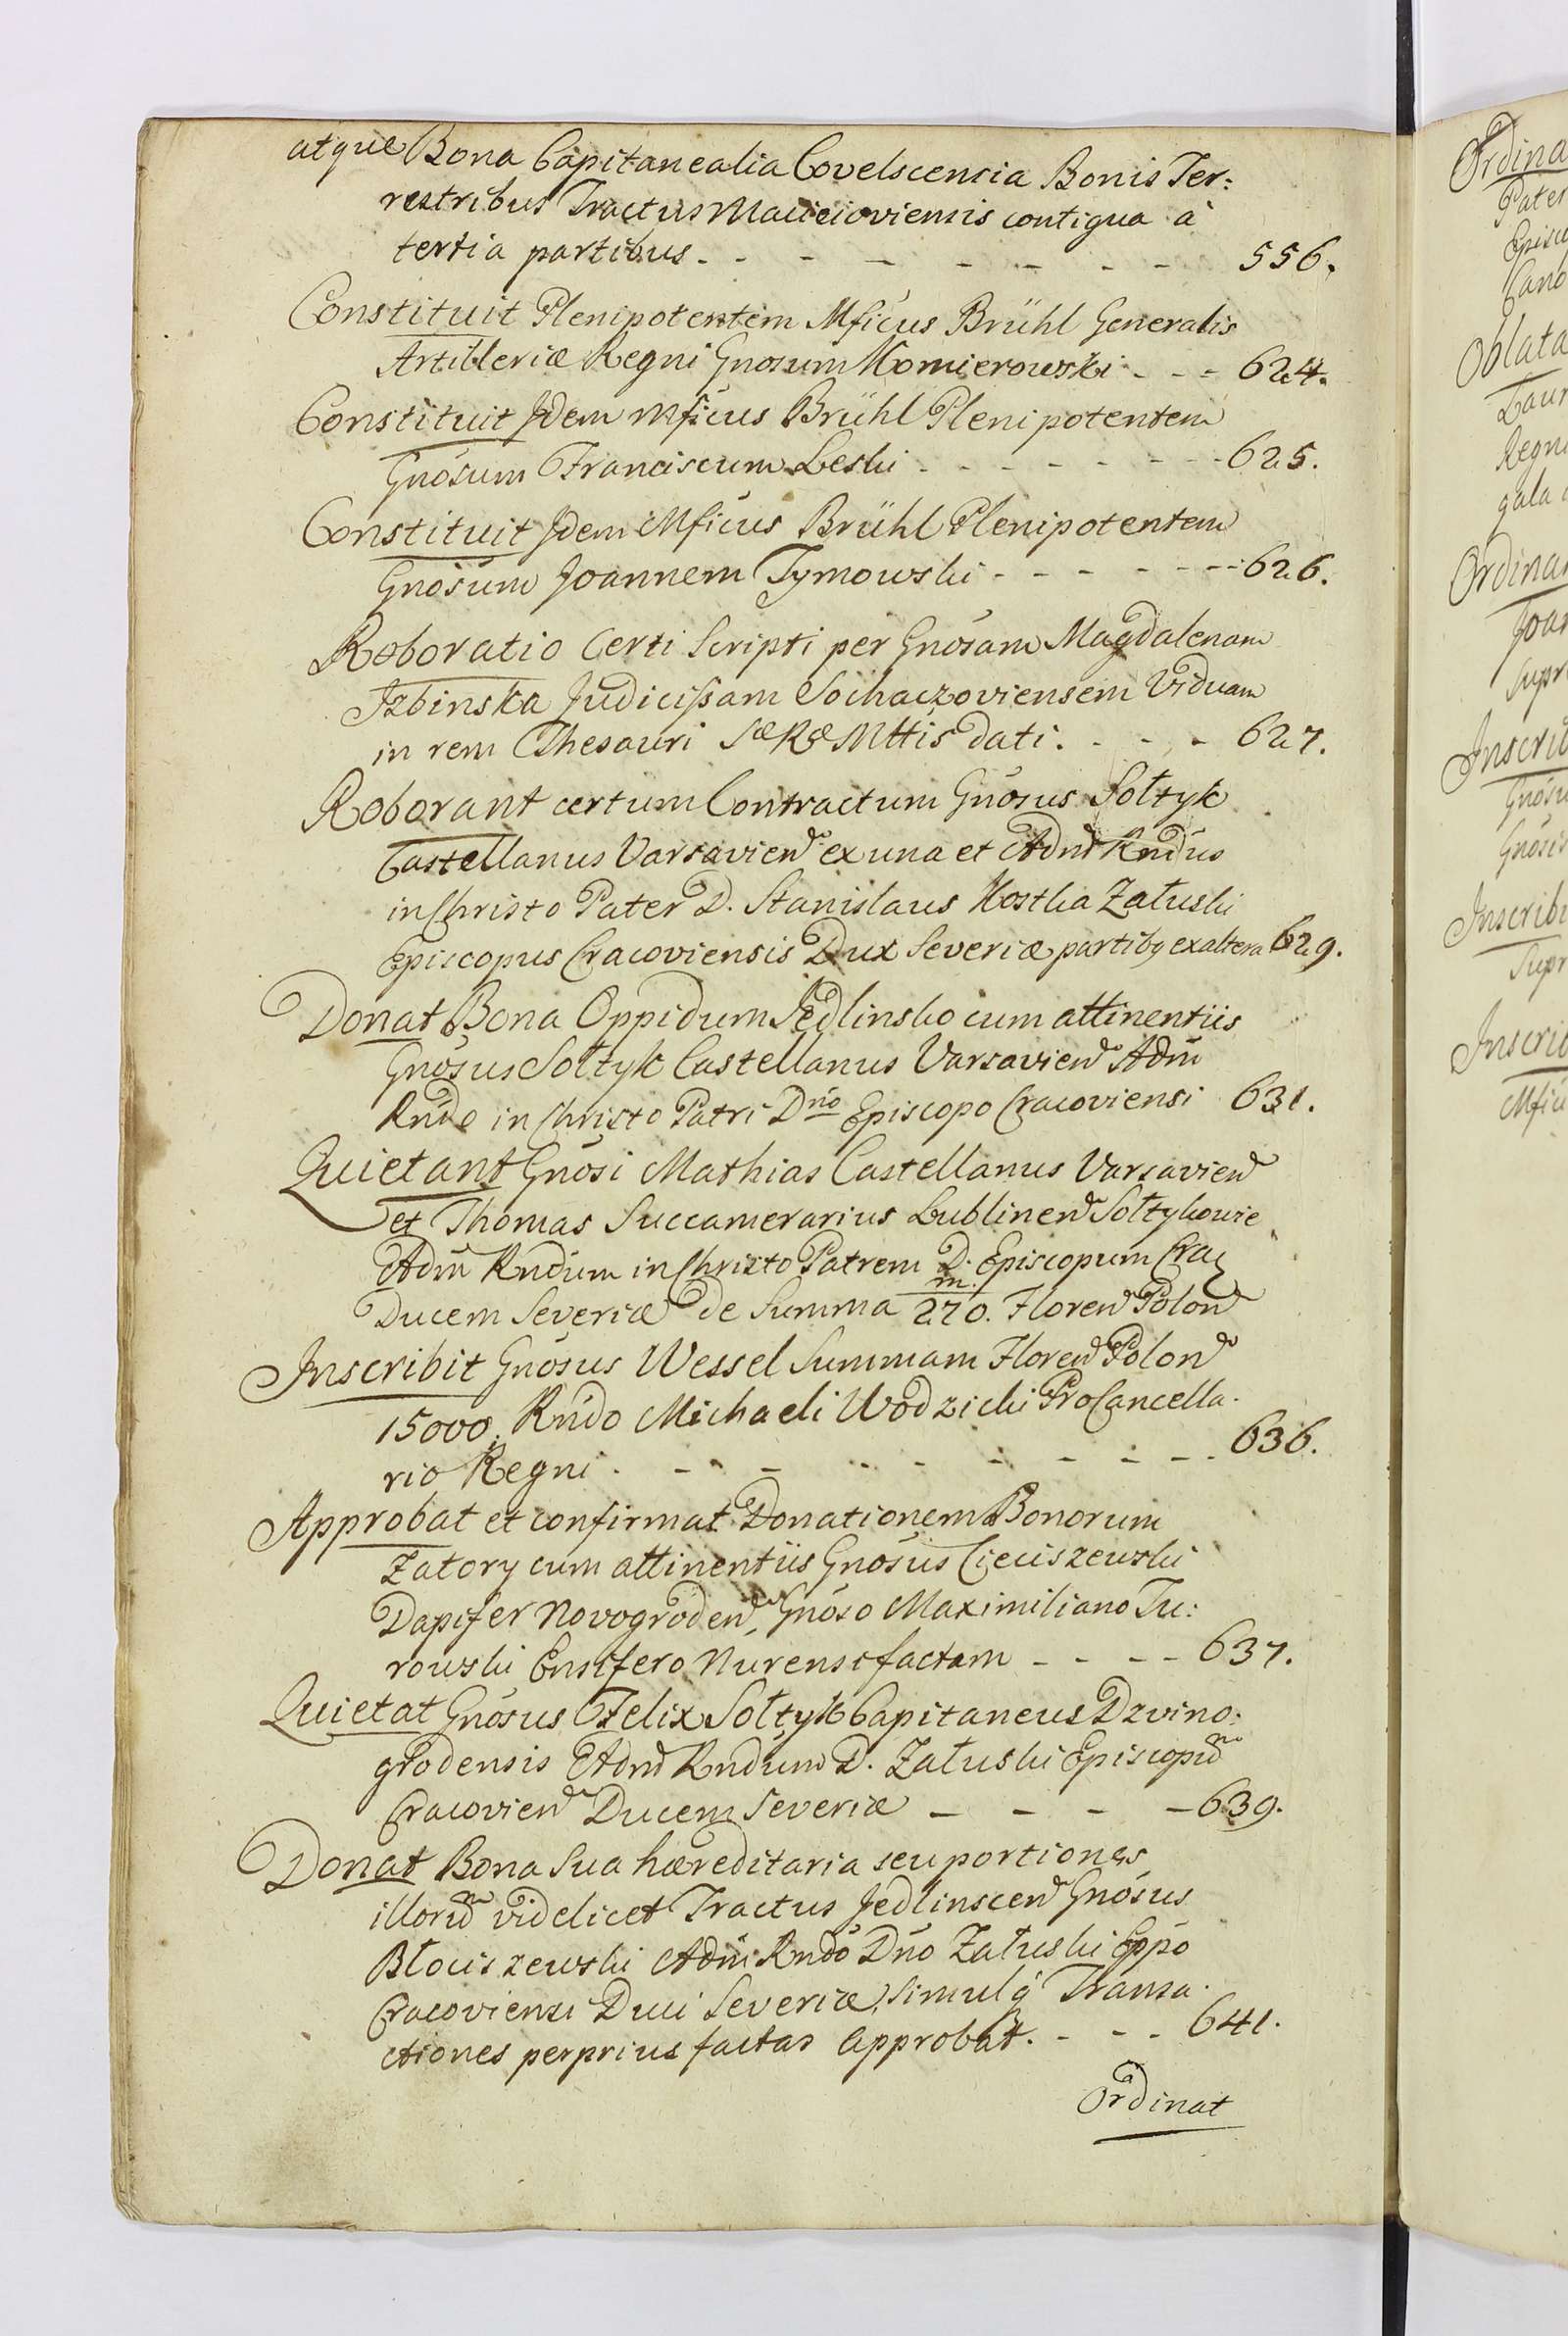 atque Bona Capitanealia Covelscensia Bonis Ter:
restribus Tractus Macieioviensis contigua à
tertia partibus - - - - - - - 556.
Constituit Plenipotentem Mficus Brühl Generalis
Artilleriæ Regni Gnosum Komierowski - - - 624.
Constituit Idem Mficus Brühl Plenipotentem
Gnosum Franciscum Leski - - - - - - - 625.
Constituit Idem Mficus Brühl Plenipotentem
Gnosum Joannem Tymowski - - - - - - 626.
Roboratio Certi Scripti per Gnosam Magdalenam
Izbinska Judicissam Sochaczoviensem Viduam
in rem Thesauri Sæ Ræ Mttis dati. - - - 627.
Roborant certum Contractum Gnosus Sołtyk
Castellanus Varsavien ex una et Adm Rndus
in Christo Pater D. Stanislaus Kostka Załuski
Episcopus Cracoviensis Dux Severiæ partibq ex altera 629.
Donat Bona Oppidum Jedlinsko cum attinentiis
Gnosus Sołtyk Castellanus Varsavien Adm
Rndo in Christo Patri Dno Episcopo Cracoviensi 631.
Quietant Gnosi Mathias Castellanus Varsavien
et Thomas Succamerarius Lublinen Sołtykowie
Adm Rndum in Christo Patrem D. Episcopum Crac
Ducem Severiæ de Summa 270 m. Floren Polon
Inscribit Gnosus Wessel Summam Floren Polon
15000. Rndo Michaeli Wodzicki ProCancella.
rio Regni. - - - - - - - - 636.
Approbat et confirmat Donationem Bonorum
Zatory cum attinentiis Gnosus Cieciszewski
Dapifer Novogroden, Gnoso Maximiliano Tu:
rowski Ensifero Nurensi factam - - - - 637.
Quietat Gnosus Felix Sołtyk Capitaneus Dzvino:
grodensis Adm Rndum D. Załuski Episcopum
Cracovien Ducem Severiæ - - - - 639.
Donat Bona Sua hæreditaria seu portiones
illorum videlicet Tractus Jedlinscen Gnosus
Błociszewski Adm Rndo Dno Załuski Eppo
Cracoviensi Duci Severiæ, simulq Transa.
ctiones perprius factas approbat. - - - 641.
Ordinat
Pater
Oblata
Regni
Inscrib
Inscribi
Inscrib